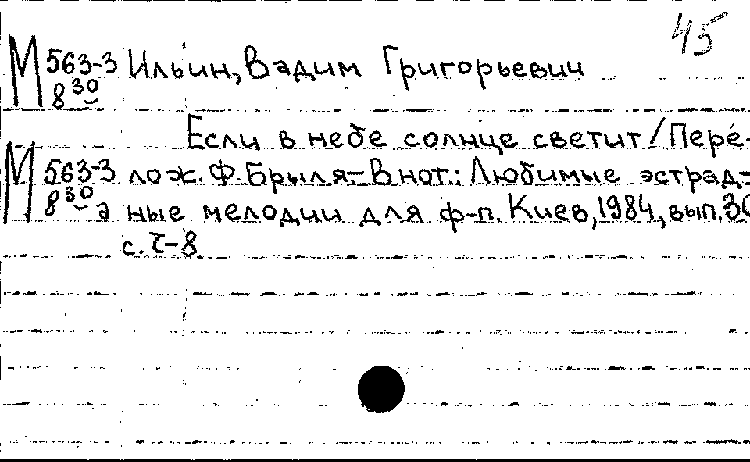 45
М 563-3 Ильин, Вадим Григорьевич
8 30
Если в небе солнце светит / Пере-
М 563-3 лож. Ф. Брыля.- В нот.: Любимые эстрад-
8 30 а ные мелодии для ф-п. Киев, 1984, вып. 30
с. 7-8.